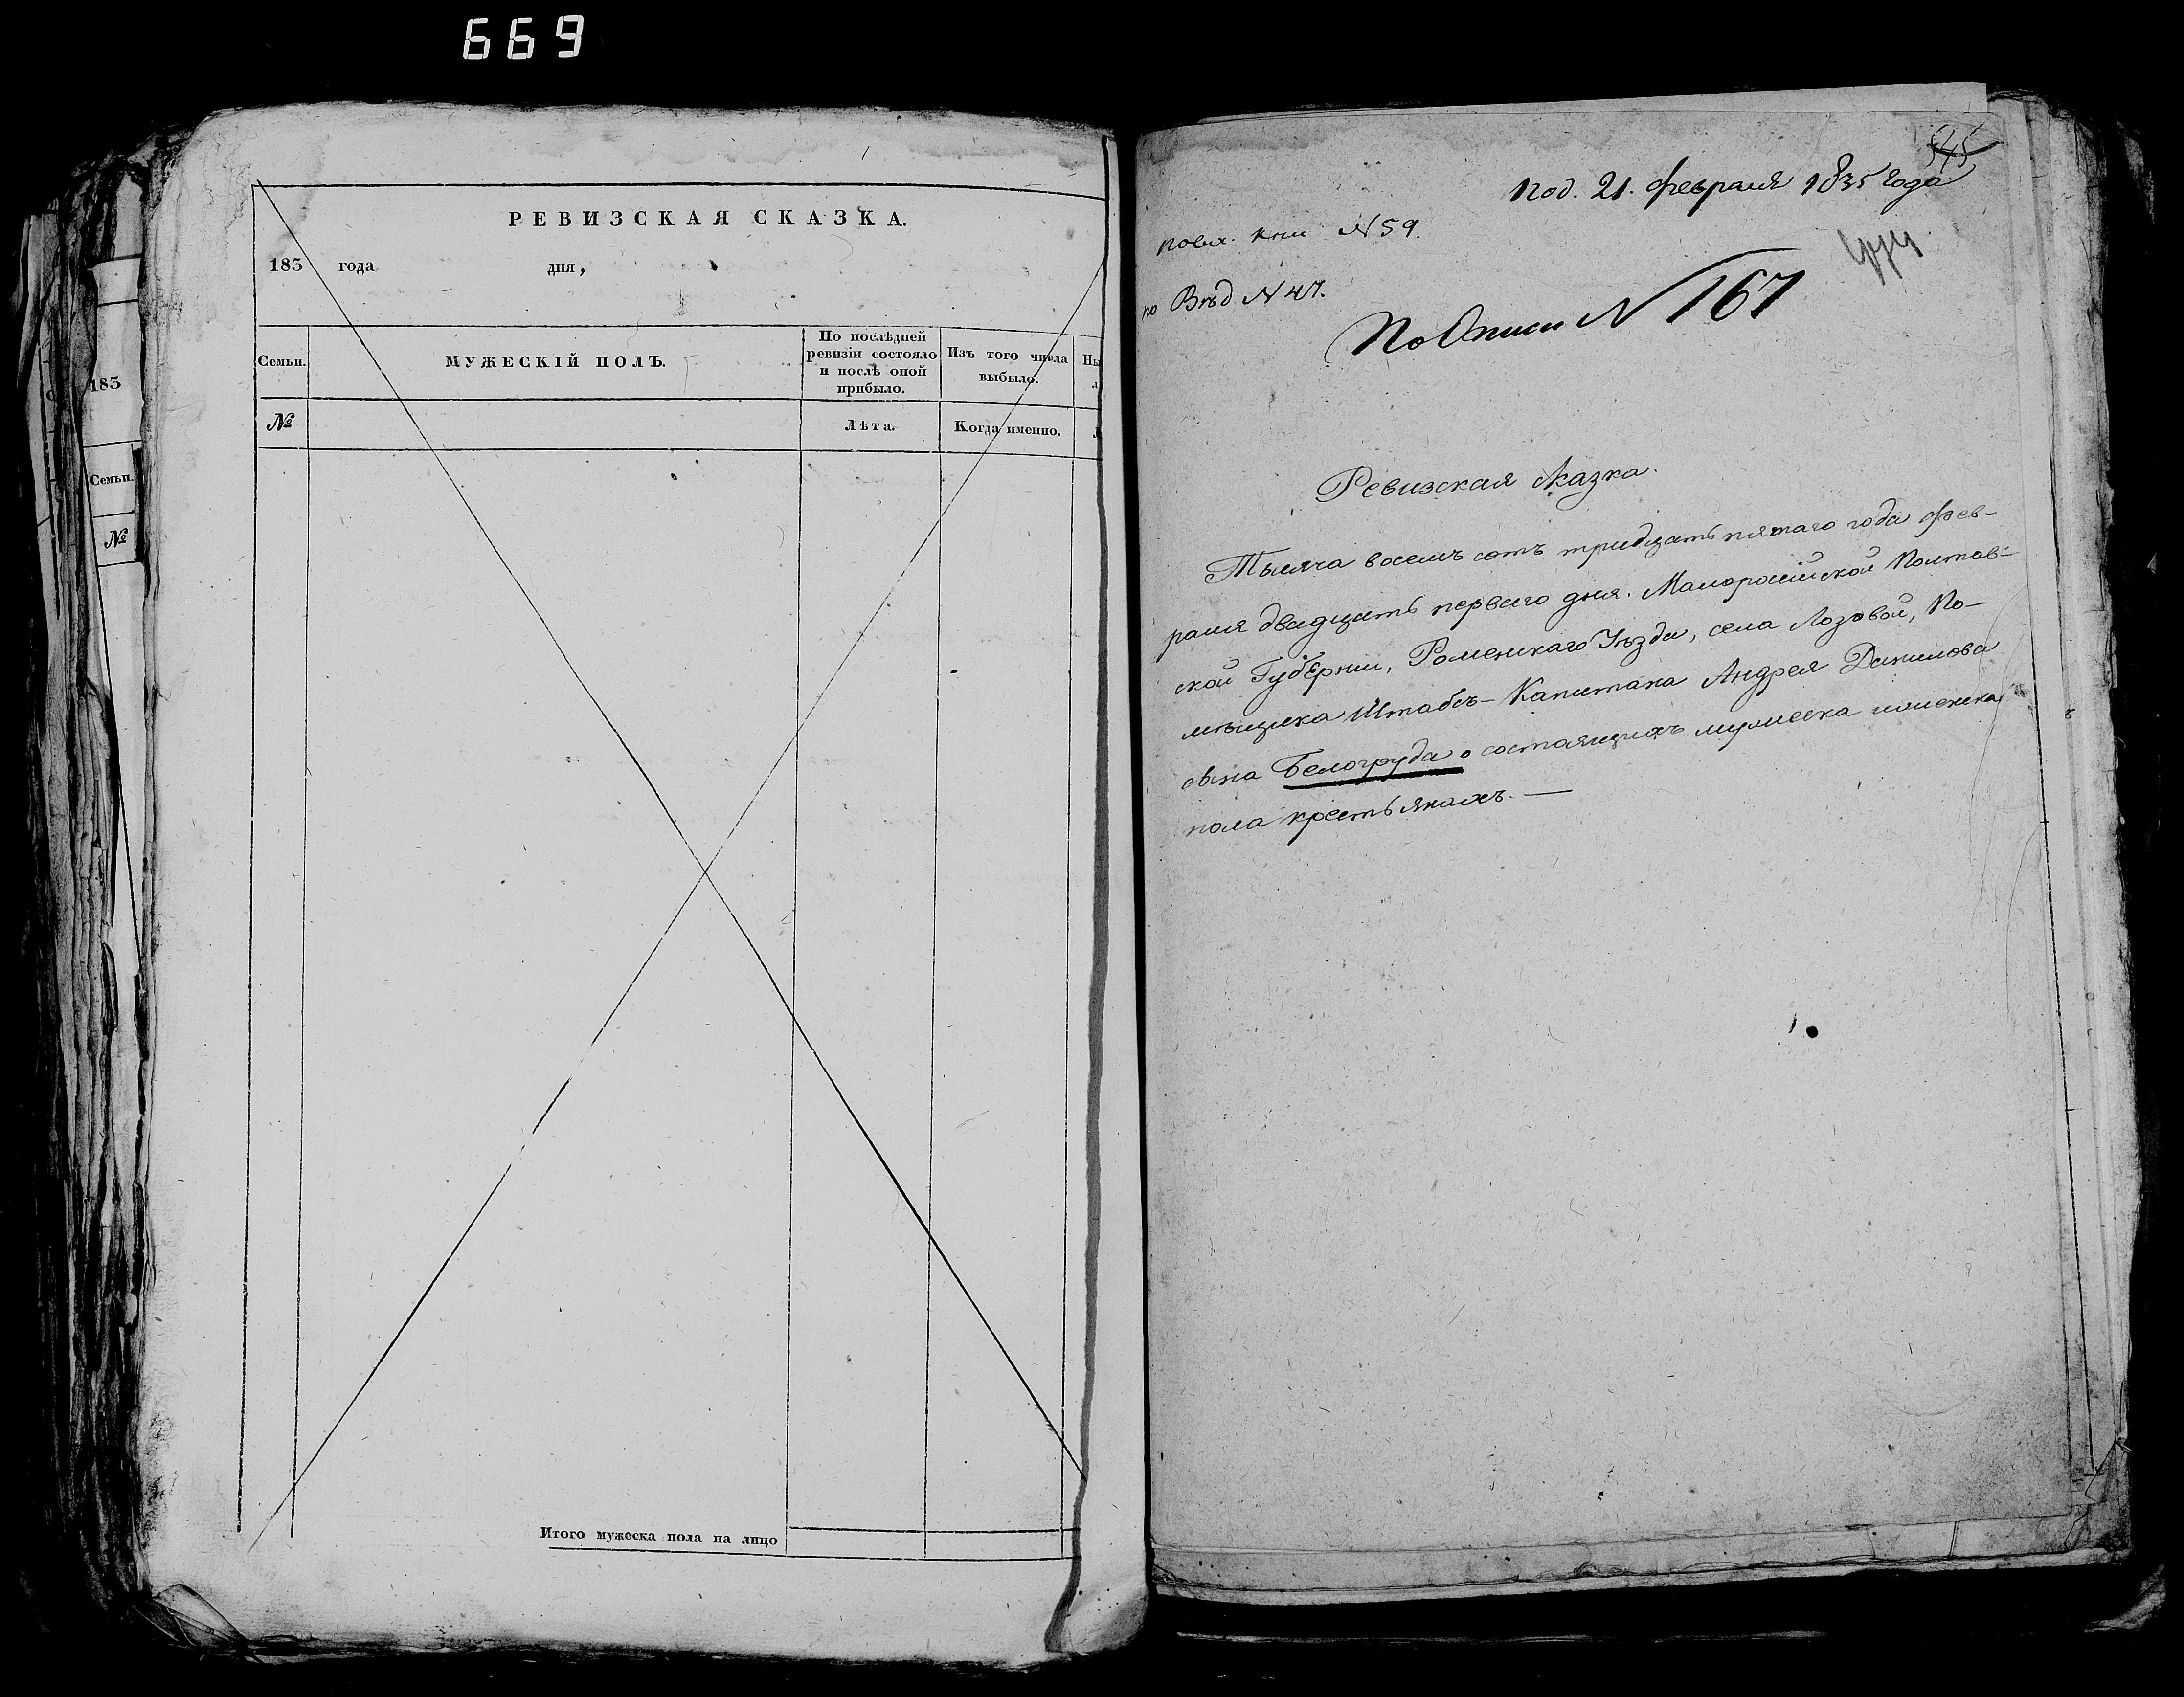 669
183
Семьи.
№
РЕВИЗСКАЯ СКАЗКА.
183 года дня,
Семьи.
МУЖЕСКІЙ ПОЛЪ.
По послѣдней ревизіи состояло и послѣ оной прибыло.
Изъ того числа выбыло.
№
Лѣта.
Когда именно.
Итого мужеска пола на лицо
545
под. 21. февраля 1835 года
N 59.
по Вѣд N 47.
По Описи N 167
Ревизская сказка.
Тысяча восемь сотъ тридцать пятаго года Фев-
раля двадцать перваго дня. Малоросійской Полтав-
ской Губерніи, Роменскаго Уѣзда, села Лозовой, По-
мѣщика Штабсъ-Капитана Андрея Данилова
сына Белогруда о состоящихъ мужеска и женска
пола крестьянахъ. —